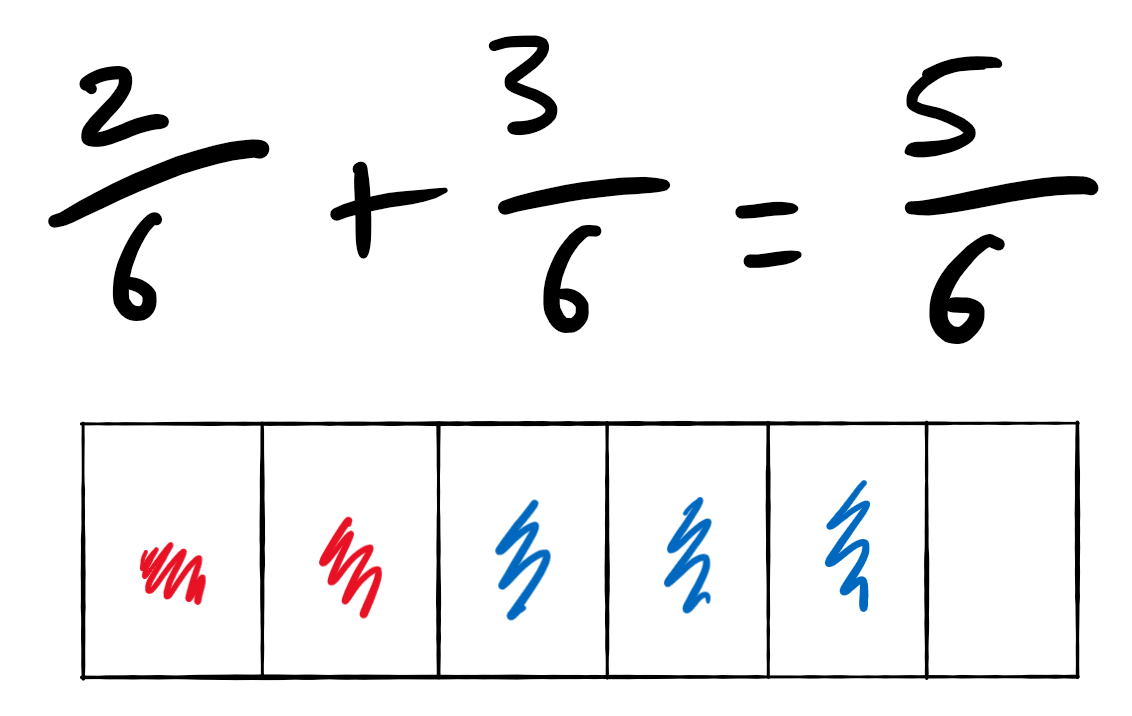 2/6 + 3/6 = 5/6